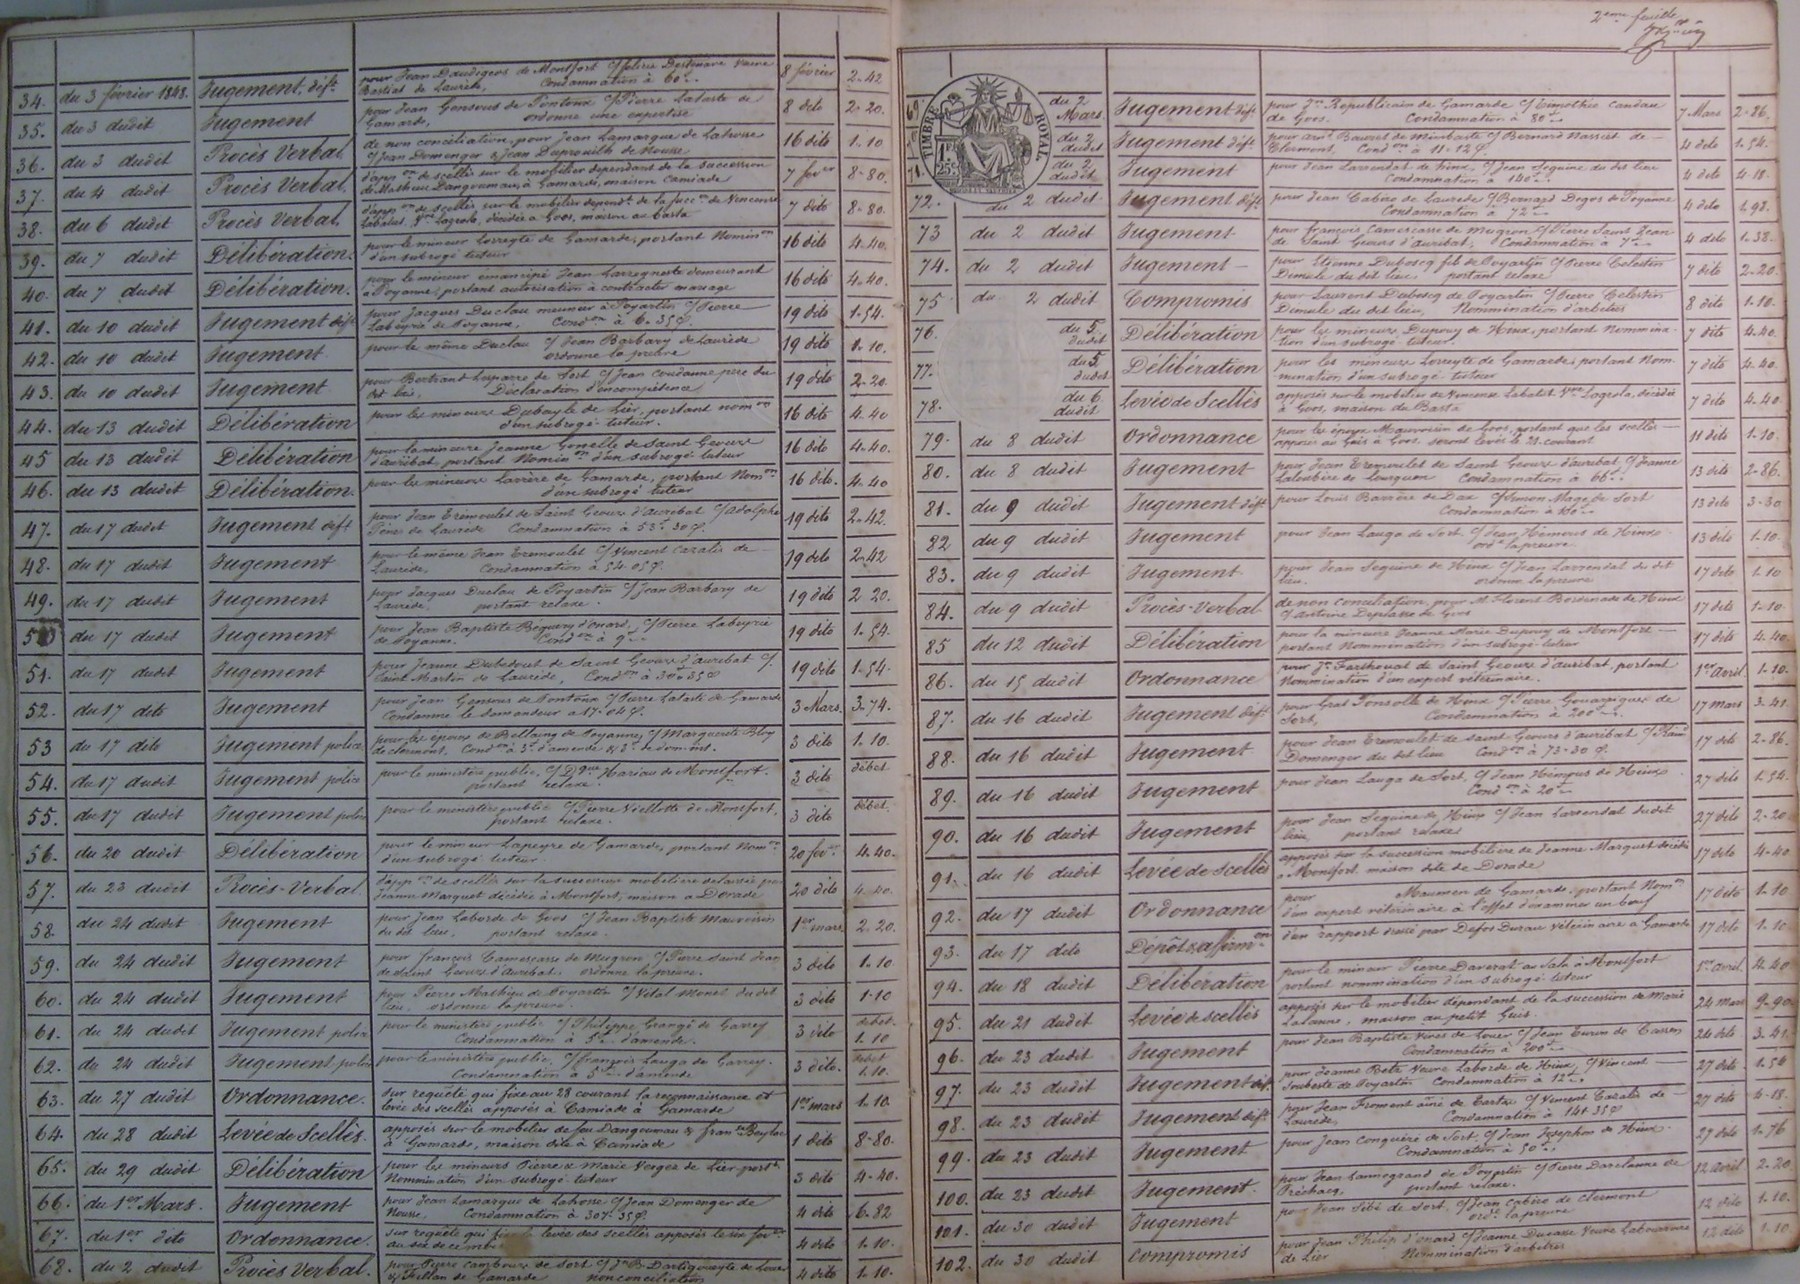 34. du 3 février 1848. Jugement déft. pour Jean Daudigeos de Montfort c/ Veuve 8 février 2-42
Bastiat de Laurède, Condamnation à 60f
35. du 3 dudit Jugement pour Jean Gensous de Pontonx c/ Pierre Lataste de 8 dito 2-20.
Gamarde, ordonne une expertise
36. du 3 dudit Procès Verbal de non conciliation, pour Jean Lamarque de Lahosse 16 dito 1-10
c/ Jean Domenger & Jean Duprouilh de Nousse
37. du 4 dudit Procès Verbal d'appon de scellés sur le mobilier dependant de la succession 7 fevrer 8-80.
de Mathieu Dangoumau, à Gamarde, maison Camiade
38. du 6 dudit Procès Verbal d'appon de scellés sur le mobilier dependt de la succon de Vincence 7 dito 8-80.
Labatut Vve Lagrola, décédée à Goos, maison au Basta
39. du 7 dudit Délibération. pour le mineur Lorreyte de Gamarde, portant Nominon 16 dito 4-40.
d'un subrogé tuteur
40. du 7 dudit Délibération. pour le mineur émancipé Jean demeurant 16 dito 4-40.
à Poyanne, portant autorisation à contracter mariage
41. du 10 dudit Jugement déft pour Jacques Duclau meunier à Poyartin c/ Pierre 19 dito 1-54.
Labeyrie de Poyanne, Condon à 6-35c.
42. du 10 dudit Jugement pour le même Duclau c/ Jean Barbary de Laurède 19 dito 1-10.
ordonne la preuve
43. du 10 dudit Jugement pour Bertrand Luparre de Sort c/ Jean Condanne père du 19 dito 2-20
dit lieu, Déclaration d'incompétence
44. du 13 dudit Délibération pour les mineurs Dubayle de Lier, portant nomon 16 dito 4-40
d'un subrogé tuteur.
45 du 13 dudit Délibération pour la mineure Jeanne de Saint Geours 16 dito 4-40.
d'auribat, portant Nominon d'un subrogé tuteur
46. du 13 dudit Délibération. pour les mineurs Larrère de Gamarde, portant Nomon 16 dito. 4-40
d'un subrogé tuteur
47. du 17 dudit Jugement déft pour Jean Tremoulet de Saint Geours d'auribat c/ adolphe 19 dito 2-42.
de Laurède Condamnation à 53f 30c.
48. du 17 dudit Jugement pour le même Jean Tremoulet c/ Vincent Cazalis de 19 dito 2-42
Laurède, Condamnation à 54-05c.
49. du 17 dudit Jugement pour Jacques Duclau de Poyartin c/ Jean Barbary de 19 dito 2 20.
Laurède, portant relaxe.
50 du 17 dudit Jugement pour Jean Baptiste d'onard, c/ Pierre Labeyrie 19 dito 1-54.
de Poyanne. Condon à 9f
51. du 17 dudit Jugement pour Jeanne Dubedout de Saint Geours d'auribat c/ 19 dito 1-54.
Saint Martin de Laurède, Condon à 30f 35c
52. du 17 dito Jugement pour Jean Gensous de Pontonx c/ Pierre Lataste de Gamarde 3 Mars. 3-74.
Condamne le demandeur à 17-04c.
53 du 17 dito Jugement police pour les époux de Bellaing de Poyanne, c/ Marguerite 3 dito 1-10.
de clermont, Condon à 3f d'amende & 3f de dom. int.
54. du 17 dudit Jugement police pour le ministère public, c/ Dque Hariau de Montfort. 3 dito débet
portant relaxe.
55. du 17 dudit Jugement police pour le ministère public c/ Pierre de Montfort, 3 dito débet.
portant relaxe.
56. du 20 dudit Délibération pour le mineur Lapeyre de Gamarde, portant Nomon 20 fevrer 4-40.
d'un subrogé tuteur
57. du 23 dudit Procès-Verbal. d'appon de scellés sur la succession mobilière delaissée par 20 dito 4-40.
Jeanne Marquet décédée à Montfort, maison à Dorade
58. du 24 dudit Jugement pour Jean Laborde de Goos c/ Jean Baptiste Mauvoisin 1er mars 2-20.
du dit lieu, portant relaxe.
59. du 24 dudit Jugement pour françois Camescasse de Mugron c/ Pierre Saint Jean 3 dito 1-10
de Saint Geours d'auribat, ordonne la preuve.
60. du 24 dudit Jugement pour Pierre Mathieu de Poyartin c/ Vital Monet du dit 3 dito 1-10
lieu, ordonne la preuve.
61. du 24 dudit Jugement police pour le ministère public c/ Philippe de Garrey 3 dito debet.
Condamnation à 5f d'amende. 1.10
62. du 24 dudit Jugement police pour le ministère public, c/ françois Lauga de Garrey. 3 dito. debet
Condamnation à 5f d'amende 1.10.
63. du 27 dudit Ordonnance. sur requête qui fixe au 28 courant la reconnaissance et 1er mars 1-10.
levée des scellés apposés à Camiade à Gamarde
64. du 28 dudit Levée de Scellés. apposés sur le mobilier de feu Dangoumau & 1 dito 8-80.
à Gamarde, maison dite à Camiade
65. du 29 dudit Délibération pour les mineurs Pierre & Marie Verges de Lier portt 3 dito 4-40.
Nommination d'un subrogé tuteur
66. du 1er Mars. Jugement pour Jean Lamarque de Lahosse c/ Jean Domenger de 4 dito 6-82
Nousse. Condamnation à 307-35c.
67. du 1er dito Ordonnance. sur requête qui fixe la levée des scellés apposés
4 dito 1-10.
68. du 2 dudit Procès Verbal. pour Pierre Cambour de Sort c/ 4 dito 1-10.
de Gamarde non conciliation
2eme feuille
69 du 2 Mars. Jugement déft pour Republicain de Gamarde c/ Timothée Candau 7 Mars 2-86.
de Goos. Condamnation à 80f
TIMBRE ROYAL.
1F 25c.
du 2 dudit Jugement déft. pour Bauret de Mimbaste c/ Bernard Nassiet de 4 dito 1-54.
Clermont, Condon à 11-12c.
71. du 2 dudit Jugement pour Jean Larrendat de hinx, c/ Jean Seguine du dit lieu 4 dito 4-18.
Condamnation à 140f
72. du 2 dudit Jugement déft pour Jean Cabiro de Laurède c/ Bernard Degos de Poyanne 4 dito 1-98.
Condamnation à 72f
73 du 2 dudit Jugement pour françois Camescasse de Mugron c/ Pierre Saint Jean 4 dito 1-38.
de Saint Geours d'auribat, Condamnation à 7f
74. du 2 dudit Jugement pour Etienne Duboscq fils de Poyartin c/ Pierre Celestin 7 dito 2-20.
du dit lieu, portant relaxe
75 du 2 dudit Compromis pour Laurent Duboscq de Poyartin c/ Pierre Celestin 8 dito 1-10.
du dit lieu, Nommination d'arbitres
76. du 5 dudit Délibération pour les mineurs Dupouy de Hinx, portant Nommina- 7 dito 4-40.
tion d'un subrogé tuteur.
77. du 5 dudit Délibération pour les mineurs Lorreyte de Gamarde, portant Nom- 7 dito 4-40.
mination d'un subrogé tuteur
78. du 6 dudit Levée de Scellés apposés sur le mobilier de Vincence Labatut Vve Lagrola, décédée 7 dito 4-40.
à Goos, maison du Basta
79. du 8 dudit Ordonnance pour les époux Mauvoisin de Goos, portant que les scellés 11 dito 1-10.
apposés au à Goos, seront levés le 21 courant
80. du 8 dudit Jugement pour Jean Tremoulet de Saint Geours d'auribat c/ Jeanne 13 dito 2-86.
de Lourquen Condamnation à 66f
81. du 9 dudit Jugement déft pour Louis Barrère de Dax c/ de Sort 13 dito 3-30
Condamnation à 100f
82 du 9 dudit Jugement pour Jean Lauga de Sort, c/ Jean de Hinx 13 dito 1-10.
ord. la preuve
83. du 9 dudit Jugement pour Jean Seguine de Hinx c/ Jean Larrendat du dit 17 dito 1-10
lieu. ordonne la preuve
84. du 9 dudit Procès-Verbal de non conciliation, pour M. Florent Bordenade de Hinx 17 dito 1-10-
c/ antoine de Goos
85 du 12 dudit Délibération pour la mineure Jeanne Marie Dupouy de Montfort 17 dito 4-40.
portant Nommination d'un subrogé tuteur
86. du 15 dudit Ordonnance pour Jn Farthouat de Saint Geours d'auribat, portant 1er Avril 1-10.
Nommination d'un expert vétérinaire.
87. du 16 dudit Jugement déft pour Gras Fonsolle de Hinx c/ Pierre de 17 mars 3-41.
Sort, Condamnation à 200f
88. du 16 dudit Jugement pour Jean Tremoulet de Saint Geours d'auribat c/ 17 dito 2-86.
Domenger du dit lieu Condon à 73-30c.
89. du 16 dudit Jugement pour Jean Lauga de Sort, c/ Jean de Hinx 27 dito 1-54.
Condon à 20f
90. du 16 dudit Jugement pour Jean Seguine de Hinx c/ Jean Larrendat du dit 27 dito 2-20.
lieu, portant relaxe
91. du 16 dudit Levée de Scellés apposés sur la succession mobilière de Jeanne Marquet décédée 17 dito 4-40
à Montfort, maison dite de Dorade
92. du 17 dudit Ordonnance pour Maumen de Gamarde, portant Nomon 17 dito 1-10
d'un expert vétérinaire à l'effet d'examiner un bœuf
93. du 17 dito Dépôt & affirmon d'un rapport dressé par Defos Durau vétérinaire à Gamarde 17 dito 1-10.
94. du 18 dudit Délibération pour le mineur Pierre Daverat au Sala à Montfort 1er avril. 4-40
portant nommination d'un subrogé tuteur
95. du 21 dudit Levée de scellés apposés sur le mobilier dependant de la succession de Marie 24 Mars 9-90.
Lalanne, maison au petit
96. du 23 dudit Jugement pour Jean Baptiste Vives de Louer c/ Jean de Cassen 24 dito 3-41.
Condamnation à 200f
97. du 23 dudit Jugement déft. pour Jeanne Bets Veuve Laborde de Hinx, c/ Vincent 27 dito 1-54
Soubeste de Poyartin Condamnation à 12f
98. du 23 dudit Jugement déft pour Jean Froment ainé de Tartas c/ Vincent Cazalis de 27 dito 4-18.
Laurède, Condamnation à 141-35c
99. du 23 dudit Jugement pour Jean Conquéré de Sort, c/ Jean Josephon de Hinx. 27 dito 1-76
Condamnation à 50f
100. du 23 dudit Jugement. pour Jean Lannegrand de Poyartin c/ Pierre Darclanne de 12 avril 2-20
Préchacq, portant relaxe.
101. du 30 dudit Jugement pour Jean Sibé de Sort, c/ Jean Cabiro de Clermont 12 dito 1-10.
ord. la preuve
102. du 30 dudit Compromis pour Jean Philip d'onard c/ Jeanne Ducasse Veuve 12 dito 1-10
de Lier Nommination d'arbitres